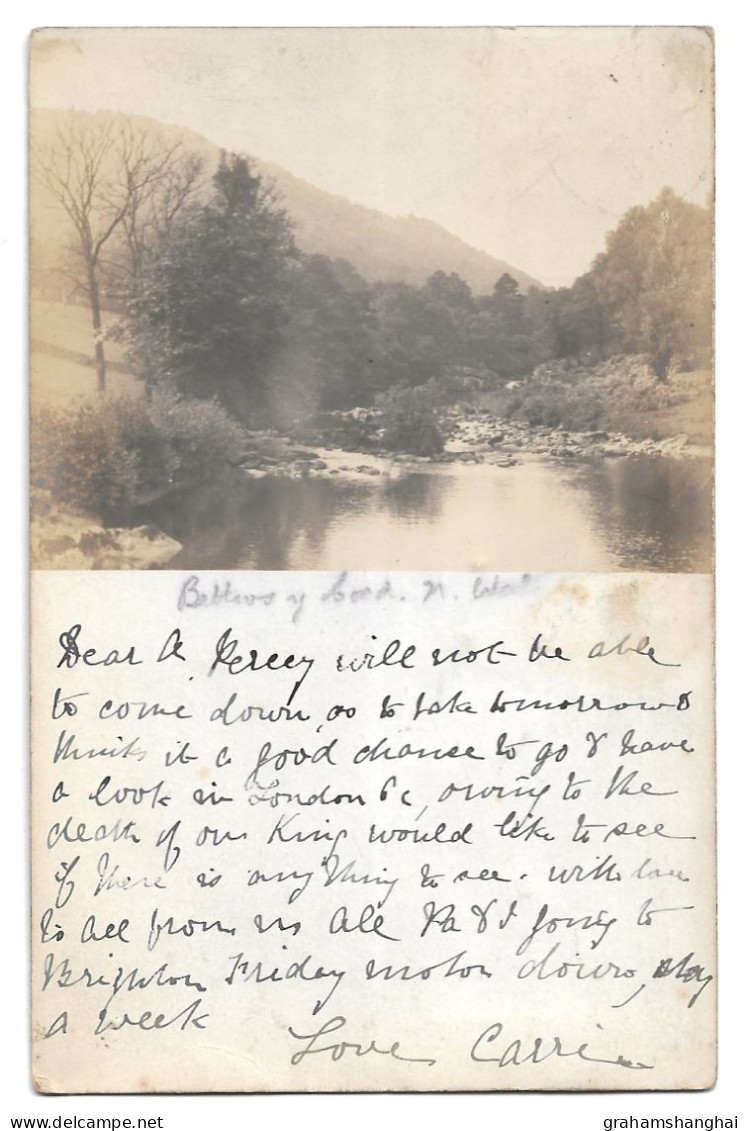 Bettws y Coed. N. Wal
Dear A, Percey will not be able
to come down, as to take tomorrow &
thinks it a good chance to go & have
a look in London &c, owing to the
death of our King would like to see
if there is anything to see. with love
to all from us All Pa & I going to
Brighton Friday motor down, stay
a week
Love Carrie
grahamshanghai